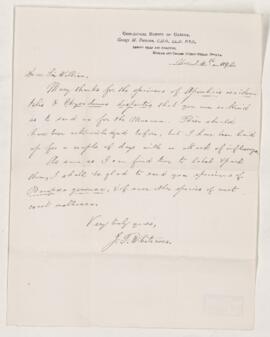 GEOLOGICAL SURVEY OF CANADA,
GEORGE M. DAWSON, C.M.G., LL.D., F.R.S.,
DEPUTY HEAD AND DIRECTOR,
MUSEUM AND OFFICE: SUSSEX STREET, OTTAWA.
Dear Sir William,
Many thanks for the specimens of
and that you were so kind
as to send us for the Museum. These should
have been acknowledged before, but I have been laid
up for a couple of days with an attack of influenza.
As soon as I can find time to label & pack
them, I shall be glad to send you specimens of
& of some other species of west
coast
Very truly yours,
J. F. Whiteaves